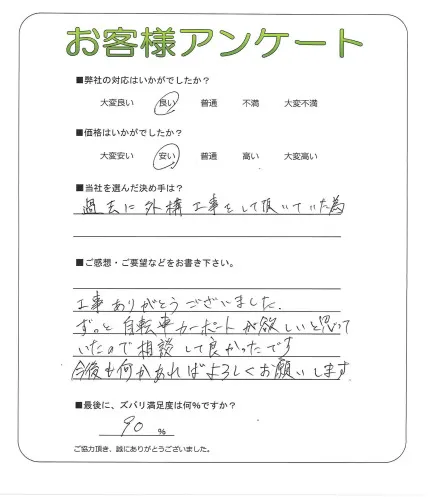 お客様アンケート
■弊社の対応はいかがでしたか？
大変良い 良い 普通 不満 大変不満
■価格はいかがでしたか？
大変安い 安い 普通 高い 大変高い
■当社を選んだ決め手は？
過去に外構工事をして頂いていた為
■ご感想・ご要望などをお書き下さい。
工事ありがとうございました.
ずっと自転車カーポートが欲しいと思って
いたので相談して良かったです
今後も何かあればよろしくお願いします.
■最後に、ズバリ満足度は何%ですか？
90 %
ご協力頂き、誠にありがとうございました。